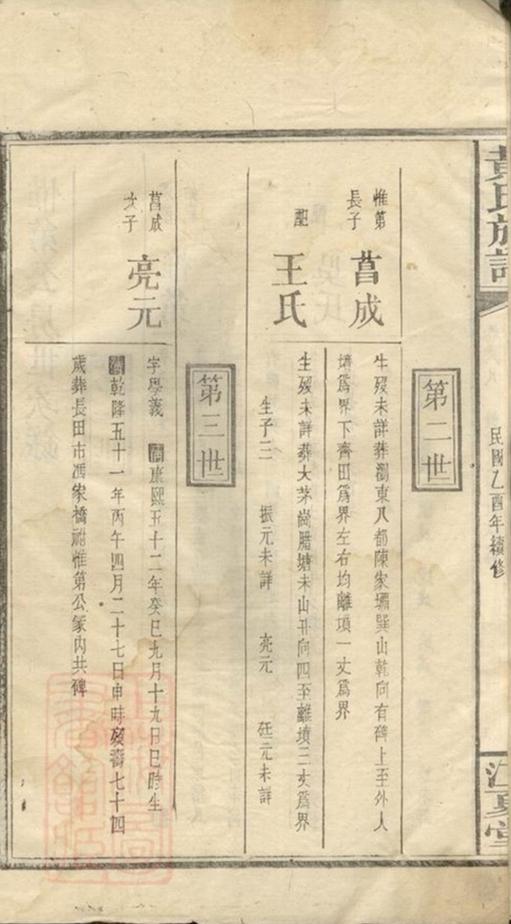 黃氏族譜
民國乙酉年續修
江夏堂
第二世
惟第
長子
菖成
生歿未詳葬瀏東八都陳家壩巽山乾向有碑上至外人
墳爲界下齊田爲界左右均離墳一丈爲界
配
王氏
生歿未詳葬大茅崗腊塘未山丑向四至離墳三丈爲界
生子三 振元未詳 亮元 廷元未詳
第三世
菖成
次子
亮元
字學義 清康熙五十二年癸巳九月十九日巳時生
清乾隆五十一年丙午四月二十七日申時歿壽七十四
歲葬長田市馮家橋祔惟第公冢內共碑